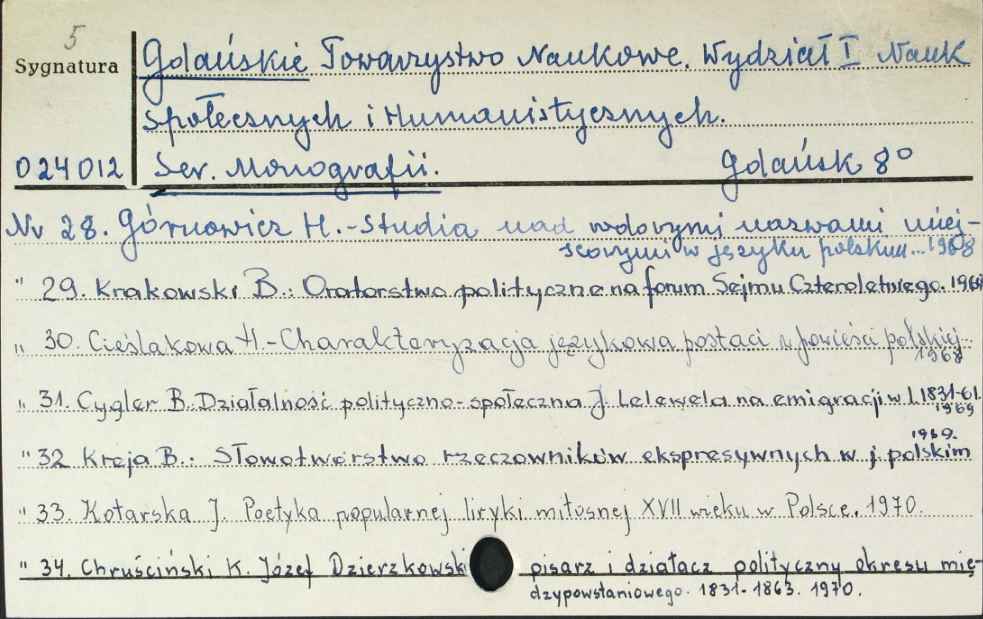 5
Sygnatura
Gdańskie Towarzystwo Naukowe. Wydział I Nauk
Społecznych i Humanistycznych.
024012 Ser. Monografii. Gdańsk 8°
Nr 28. Górnowicz H. - Studia nad rodowymi nazwami miej-
scowymi w języku polskim... 1968
" 29. Krakowski B.: Oratorstwo polityczne na forum Sejmu Czteroletniego. 1968
" 30. Cieślakowa H. - Charakteryzacja językowa postaci w powieści polskiej...
1968
" 31. Cygler B. Działalność polityczno-społeczna J. Lelewela na emigracji w l. 1831-61.
1969
1969.
" 32 Kreja B.: Słowotwórstwo rzeczowników ekspresywnych w j. polskim
" 33. Kotarska J. Poetyka popularnej liryki miłosnej XVII wieku w Polsce. 1970.
" 34. Chruściński K. Józef Dzierzkowski pisarz i działacz polityczny okresu mię-
dzypowstaniowego. 1831-1863. 1970.